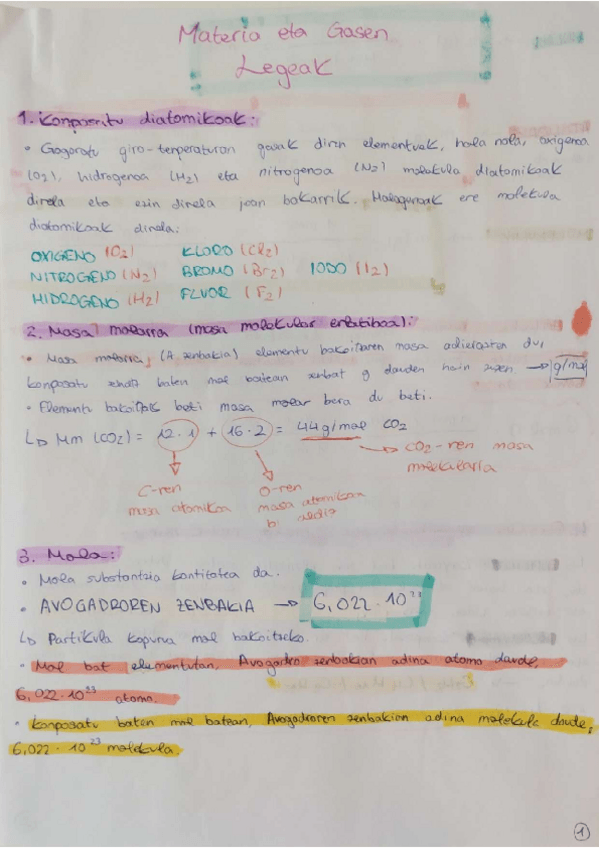 Materia eta Gasen
Legeak
1. Konposatu diatomikoak:
• Gogoratu giro-tenperaturan gasak diren elementuak, hala nola, oxigenoa
(O2), hidrogenoa (H2) eta nitrogenoa (N2) molekula diatomikoak
direla eta ezin direla joan bakarrik. Halogenoak ere molekula
diatomikoak direla:
OXIGENO (O2) KLORO (Cl2)
NITROGENO (N2) BROMO (Br2) IODO (I2)
HIDROGENO (H2) FLUOR (F2)
2. Masa molarra (masa molekular erlatiboa):
• Masa molarra, (A zenbakia) elementu bakoitzaren masa adierazten du,
konposatu baten mol batean zenbat g dauden hain zuzen. → g/mol
• Elementu bakoitzak beti masa molar bera du beti.
↳ Mm (CO2) = 12·1 + 16·2 = 44g/mol CO2
→ CO2-ren masa
molekularra
C-ren
masa atomikoa
O-ren
masa atomikoa
bi aldiz
3. Mola:
• Mola substantzia kantitatea da.
• AVOGADROREN ZENBAKIA → 6,022·10²³
↳ Partikula kopurua mol bakoitzeko.
• Mol bat elementutan, Avogadro zenbakian adina atomo daude,
6,022·10²³ atomo.
• Konposatu baten mol batean, Avogadroren zenbakian adina molekula daude,
6,022·10²³ molekula.
1